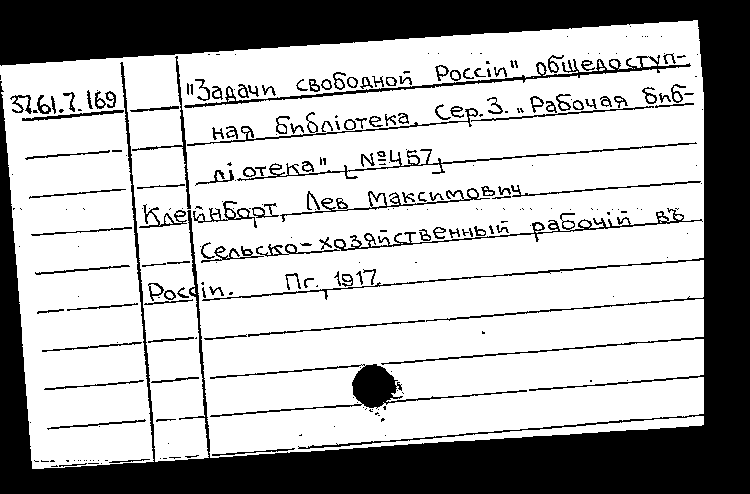 37.61.7.169
"Задачи свободной Россіи", общедоступ-
ная библіотека. Сер. 3. „Рабочая биб-
ліотека". [№457]
Клейнборт, Лев Максимович.
Сельско-хозяйственный рабочій въ
Россіи. Пг., 1917.